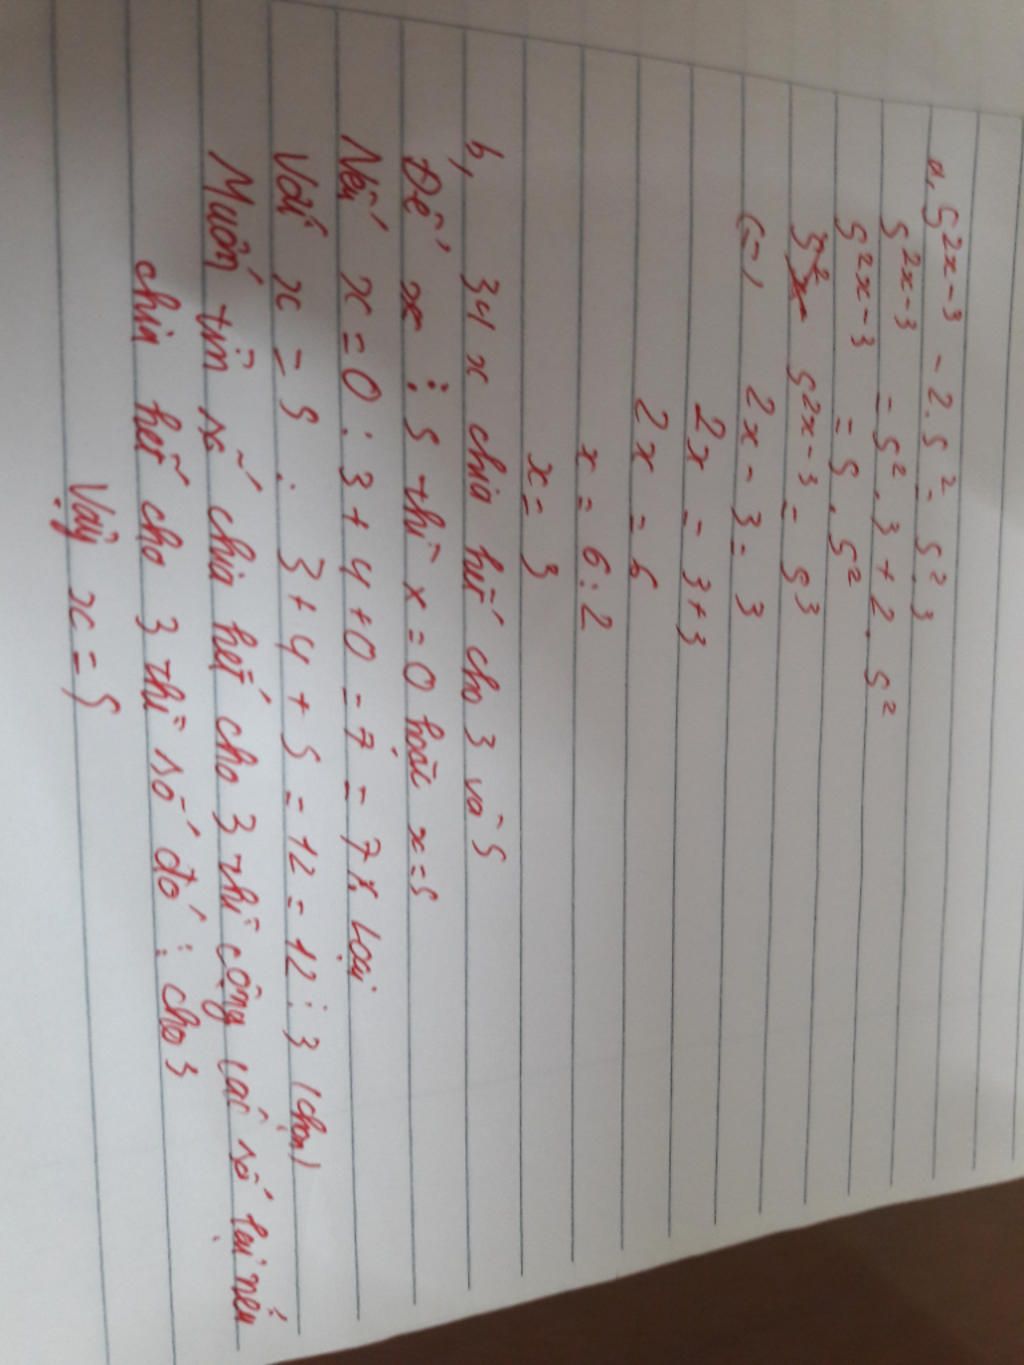 a, 5^{2x-3} - 2.5^2 = 5^2.3
5^{2x-3} = 5^2.3 + 2.5^2
5^{2x-3} = 5.5^2
5^{2x-3} = 5^3
(=) 2x - 3 = 3
2x = 3+3
2x = 6
x = 6:2
x = 3
b, 34x chia hết cho 3 và 5
Để x ⋮ 5 thì x=0 hoặc x=5
Nếu x=0 : 3+4+0 = 7 = 7 ⋮̸ Loại
Với x = 5 : 3+4+5 = 12 = 12 ⋮ 3 (chọn)
Muốn tìm số chia hết cho 3 thì cộng các số lại nếu
chia hết cho 3 thì số đó ⋮ cho 3
Vậy x = 5